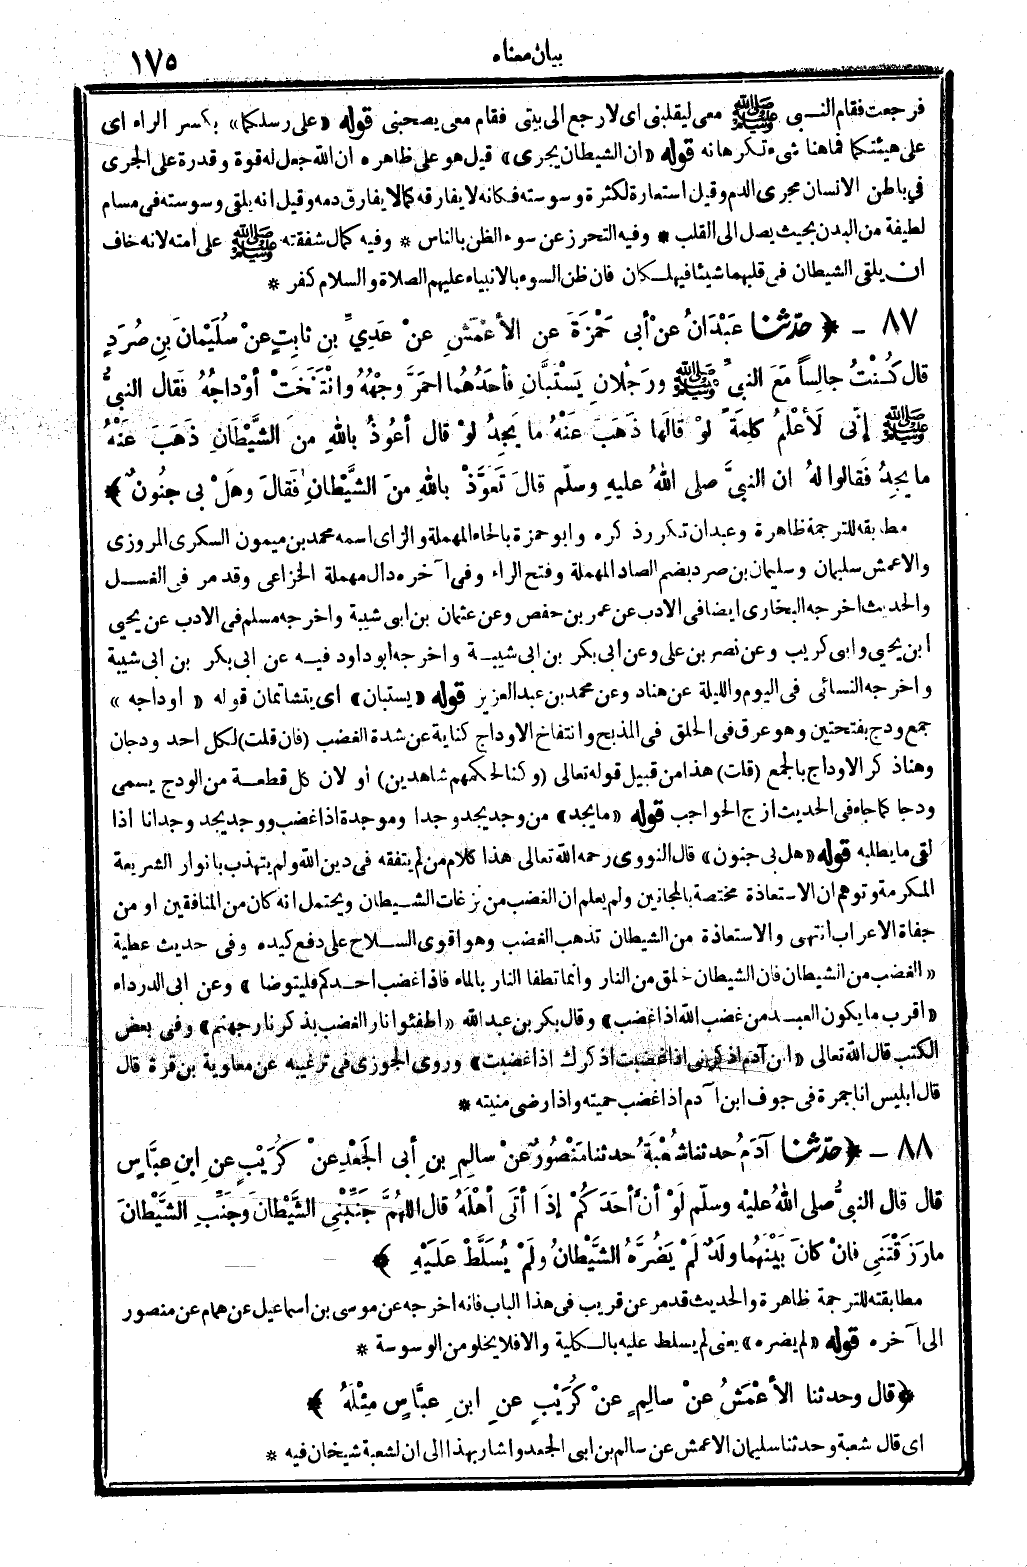 بيان معناه
١٧٥
فرجعت فقام النبي ﷺ معي ليقلبني اى لارجع الى بيتى فقام معى يصحبنى قوله «على رسلكما» بكسر الراء اى
على هيئتكما فماهنا شىء تكرهانه قوله «ان الشيطان يجرى» قيل هو على ظاهره ان الله جعل له قوة وقدرة على الجرى
فى باطن الانسان مجرى الدم وقيل استعارة لكثرة وسوسته فكانه لا يفارقه كمالا يفارق دمه وقيل انه يلقى وسوسته فى مسام
لطيفة من البدن بحيث يصل الى القلب * وفيه التحرز عن سوء الظن بالناس * وفيه كمال شفقته ﷺ على امته لانه خاف
ان يلقى الشيطان فى قلبهما شيئا فيهلكان فان ظن السوء بالانبياء عليهم الصلاة والسلام كفر *
٨٧ – ﴿ حدّثنا عَبْدَانُ عنْ أبى حَمْزَةَ عن الأعْمَشِ عنْ عَدِيِّ بنِ ثابِتٍ عنْ سُلَيْمانَ بنِ صُرَدٍ
قال كُنْتُ جالِساً مَعَ النبيِّ ﷺ ورَجُلانِ يَسْتَبَّانِ فأحَدُهُما احمَرَّ وجْهُهُ وانْتَفَخَتْ أوْداجُهُ فَقال النبيُّ
ﷺ إنِّى لَأعْلمُ كلِمَةً لوْ قالَها ذَهَبَ عَنْهُ ما يَجِدُ لوْ قال أعُوذُ باللهِ منَ الشَّيْطَانِ ذَهَبَ عَنْهُ
ما يجِدُ فَقالوا لهُ ان النبيَّ صلى اللهُ عليهِ وسلّم قالَ تَعَوَّذْ باللهِ منَ الشَّيْطانِ فَقالَ وهَلْ بى جنُونٌ ﴾
مطابقه للترجمة ظاهرة وعبدان تكرر ذكره وابو حمزة بالحاء المهملة والزاى اسمه محمد بن ميمون السكرى المروزى
والاعمش سليمان وسليمان بن صرد بضم الصاد المهملة وفتح الراء وفى آخره دال مهملة الخزاعى وقد مر فى الغسل
والحديث اخرجه البخارى ايضا فى الادب عن عمر بن حفص وعن عثمان بن ابى شيبة واخرجه مسلم فى الادب عن يحيى
ابن يحيى وابى كريب وعن نصر بن على وعن ابى بكر بن ابى شيبة واخرجه ابو داود فيه عن ابى بكر بن ابى شيبة
واخرجه النسائى فى اليوم والليلة عن هناد وعن محمد بن عبد العزيز قوله «يستبان» اى يتشاتمان قوله « اوداجه »
جمع ودج بفتحتين وهو عرق فى الحلق فى المذبح وانتفاخ الاوداج كناية عن شدة الغضب (فان قلت) لكل احد ودجان
وهنا ذكر الاوداج بالجمع (قلت) هذا من قبيل قوله تعالى (وكنا لحكمهم شاهدين) او لان كل قطعة من الودج يسمى
ودجا كما جاء فى الحديث ازج الحواجب قوله «ما يجد» من وجد يجد وجدا وموجدة اذا غضب ووجد يجد وجدانا اذا
لقى ما يطلبه قوله «هل بى جنون» قال النووى رحمه الله تعالى هذا كلام من لم يتفقه فى دين الله ولم يتهذب بانوار الشريعة
المكرمة وتوهم ان الاستعاذة مختصة بالمجانين ولم يعلم ان الغضب من نزغات الشيطان ويحتمل انه كان من المنافقين او من
جفاة الاعراب انتهى والاستعاذة من الشيطان تذهب الغضب وهو اقوى السلاح على دفع كيده وفى حديث عطية
« الغضب من الشيطان فان الشيطان خلق من النار وانما تطفا النار بالماء فاذا غضب احدكم فليتوضا » وعن ابى الدرداء
«اقرب ما يكون العبد من غضب الله اذا غضب» وقال بكر بن عبد الله «اطفئوا نار الغضب بذكر نار جهنم» وفى بعض
الكتب قال الله تعالى «ابن آدم اذكرنى اذا غضبت اذكرك اذا غضبت» وروى الجوزى فى ترغيبه عن معاوية بن قرة قال
قال ابليس انا جمرة فى جوف ابن آدم اذا غضب حميته واذا رضى منيته *
٨٨ – ﴿ حدّثنا آدَمُ حدثنا شُعْبَةُ حدثنا مَنْصُورٌ عنْ سالِمِ بنِ أبى الجَعْدِ عنْ كُرَيْبٍ عنِ ابنِ عبَّاسٍ
قال قال النبيُّ صلى اللهُ عليْه وسلّم لَوْ أنَّ أحَدَكُمْ إذَا أتَى أهْلَهُ قال اللهُمَّ جَنِّبْنِى الشَّيْطانَ وجَنِّبِ الشَّيْطانَ
ما رَزَقْتَنِى فانْ كانَ بَيْنَهُما ولَدٌ لَمْ يَضُرَّهُ الشَّيْطانُ ولَمْ يُسَلَّطْ عَلَيْهِ ﴾
مطابقته للترجمة ظاهرة والحديث قد مر عن قريب فى هذا الباب فانه اخرجه عن موسى بن اسماعيل عن همام عن منصور
الى آخره قوله «لم يضره» يعنى لم يسلط عليه بالكلية والا فلا يخلو من الوسوسة *
﴿ قال وحدثنا الأعْمَشُ عنْ سالِمٍ عنْ كُرَيْبٍ عنِ ابنِ عبَّاسٍ مِثْلَهُ ﴾
اى قال شعبة وحدثنا سليمان الاعمش عن سالم بن ابى الجعد واشار بهذا الى ان لشعبة شيخان فيه *